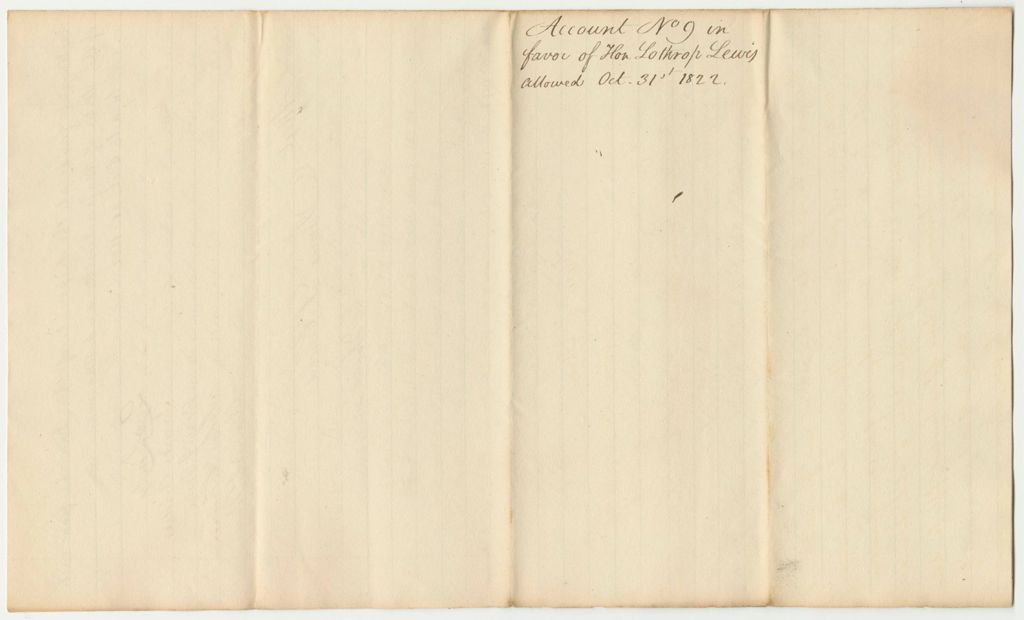 Account No 9 in
favor of Hon Lothrop Lewis
allowed Oct. 31st 1822.